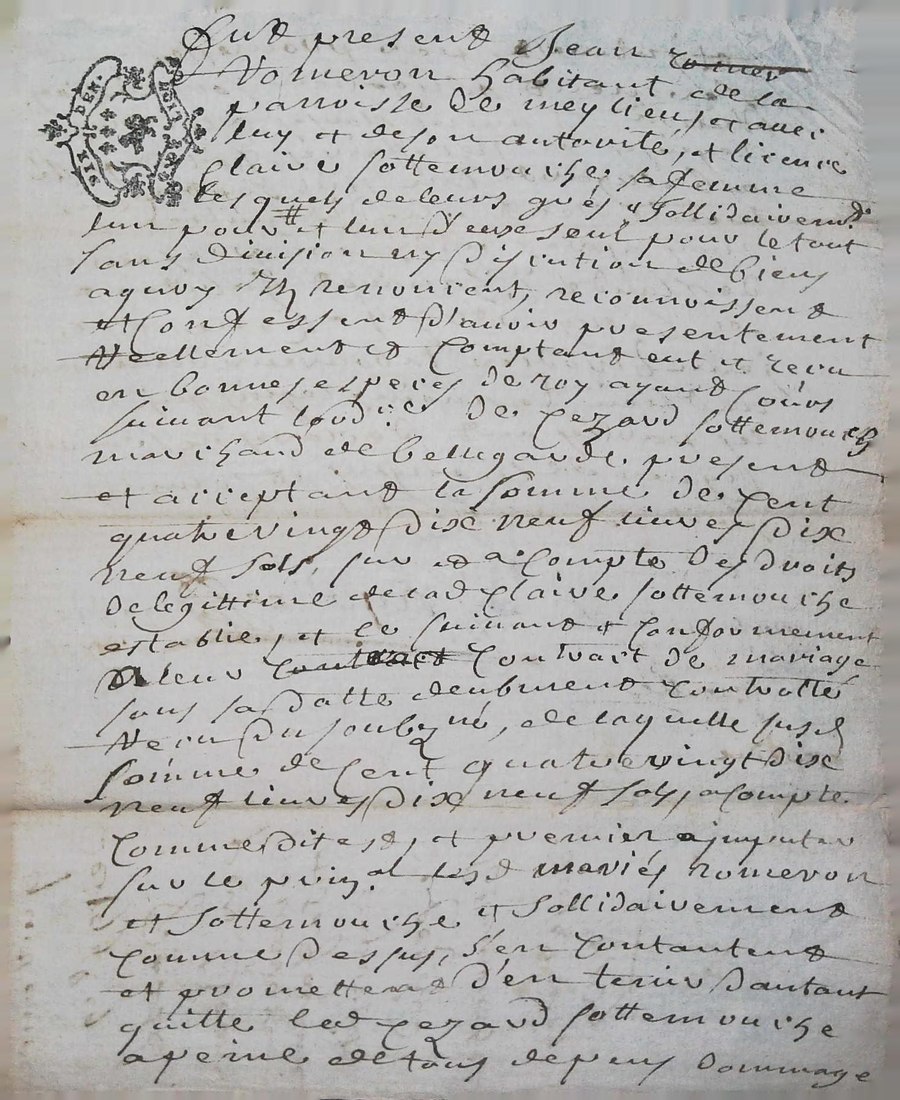 SIX DEN.
Furt present Jean romer
Romeron habitant de la
parroisse de meylieu, et avec
luy et de son autorité, et licence
Claire sottemouche, sa femme
lesquels de leurs grés, & sollidairemt
lun pour et lun d'eux seul pour le tout
sans division ny discution de biens
a quoy Ils renoncent, reconnoissent
et Confessent d'avoir presentement
reellement et Comptant eut et receu
en bonnes especes de roy ayant Cours
suivant de Cezard sottemouche
marchand de bellegarde present
et acceptant la somme de Cent
quatrevingt dix neuf livres dix
neuf sols, sur et a Compte des droits
de legittime de lad Claire sottemouche
establie, et le suivant et Conformement
a leur Contract Contract de mariage
sous sa datte deubment Controllé
receu du soubzné, de laquelle susd
somme de Cent quatrevingt dix
neuf livres dix neuf sols, a Compte
Comme dit est, et premier a imputer
sur le prinal lesd mariés romeron
et sottemouche et sollidairement
Comme dessus, s'en Contantent
et promettent d'en tenir dautant
quitte led Cezard sottemouche
a peine de tous depens dommage